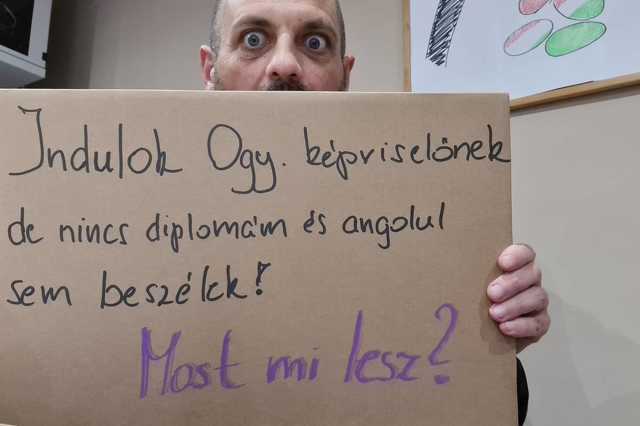 Indulok Ogy. képviselőnek
de nincs diplomám és angolul
sem beszélek!
Most mi lesz?